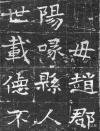 母趙郡
陽喙縣人
世載德不